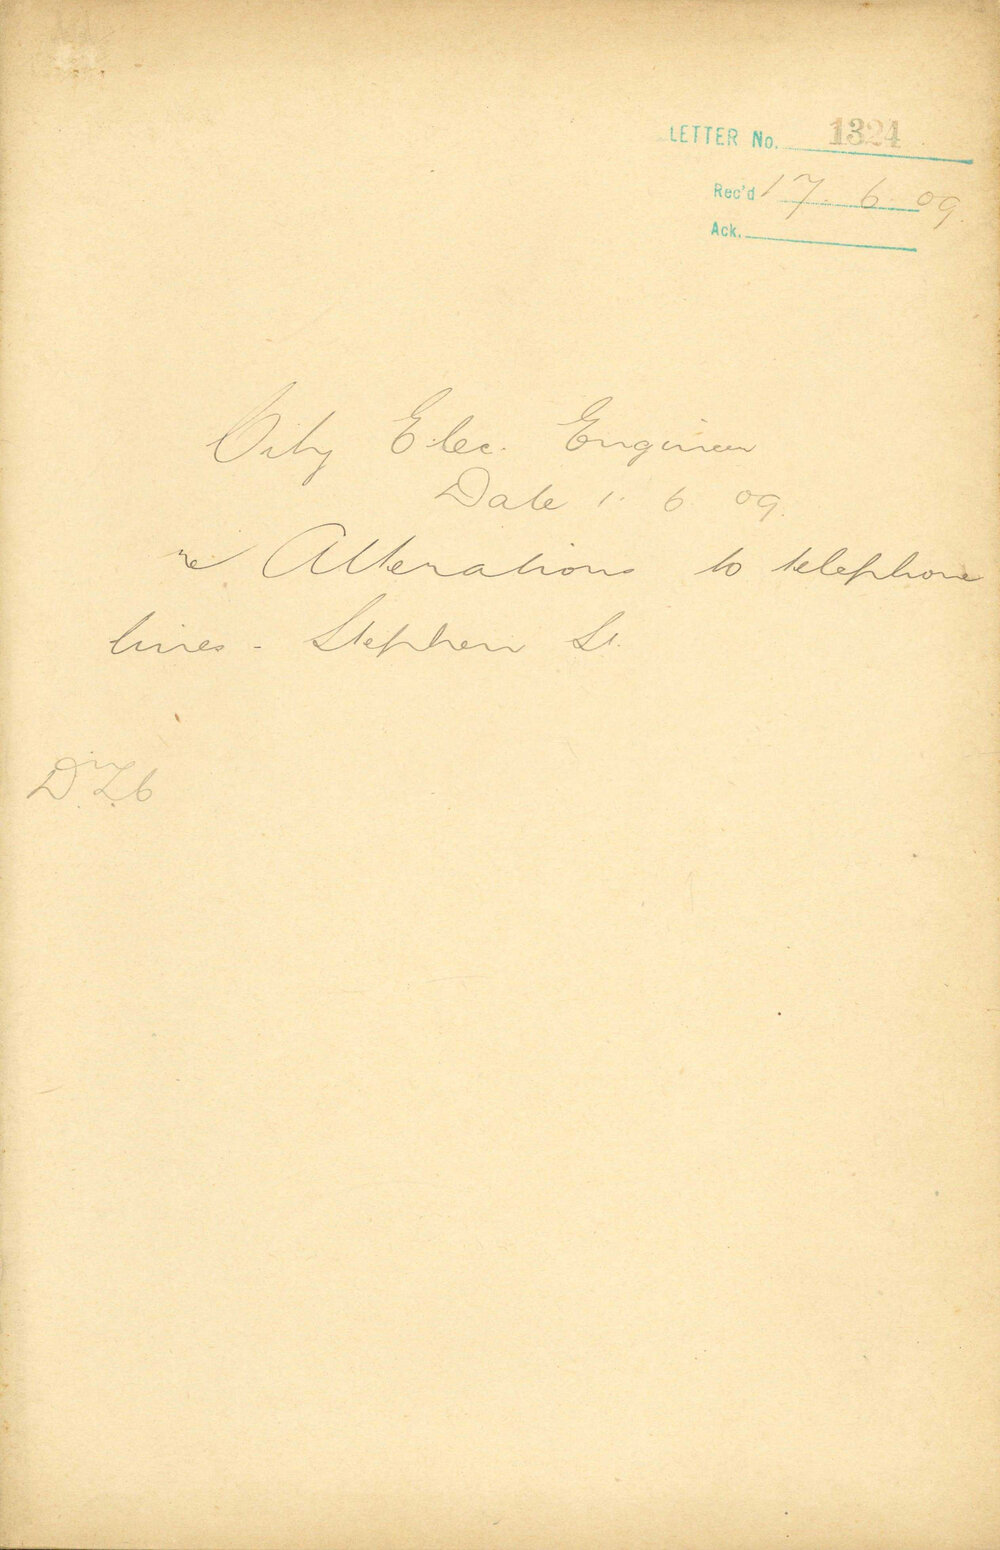 LETTER No. 1324
Rec'd 17. 6 09.
Ack.
City Elec. Engineer
Date 1. 6. 09.
re Alterations to telephone
lines - Stephen St.